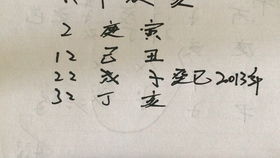 2 庚 寅
12 己 丑
22 戊 子 癸巳 2013年
32 丁 亥